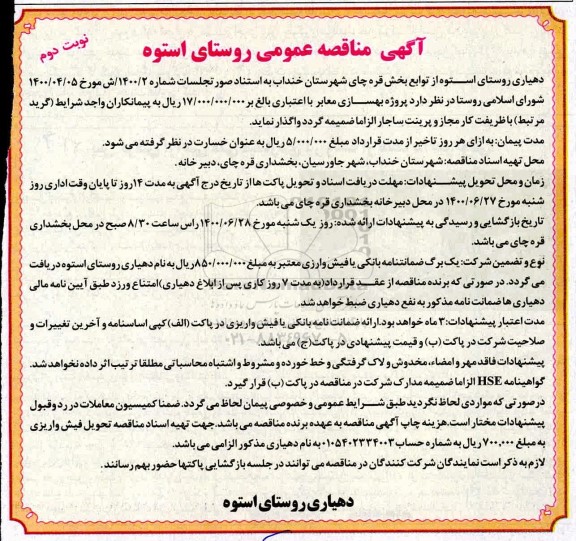 نوبت دوم
آگهی مناقصه عمومی روستای استوه
دهیاری روستای استوه از توابع بخش قره چای شهرستان خنداب به استناد صورتجلسات شماره ۱۴۰۰/۲/ش مورخ ۱۴۰۰/۰۴/۰۵
شورای اسلامی روستا در نظر دارد پروژه بهسازی معابر با اعتباری بالغ بر ۱۷/۰۰۰/۰۰۰/۰۰۰ ریال به پیمانکاران واجد شرایط (گرید
مرتبط) با ظرفیت کار مجاز و پرینت ساجار الزاما ضمیمه گردد واگذار نماید.
مدت پیمان: به ازای هر روز تاخیر از مدت قرارداد مبلغ ۵/۰۰۰/۰۰۰ ریال به عنوان خسارت در نظر گرفته می شود.
محل تهیه اسناد مناقصه: شهرستان خنداب، شهر جاورسیان، بخشداری قره چای، دبیر خانه.
زمان و محل تحویل پیشنهادات: مهلت دریافت اسناد و تحویل پاکت ها از تاریخ درج آگهی به مدت ۱۴ روز تا پایان وقت اداری روز
شنبه مورخ ۱۴۰۰/۰۶/۲۷ در محل دبیر خانه بخشداری قره چای می باشد.
تاریخ بازگشایی و رسیدگی به پیشنهادات ارائه شده: روز یک شنبه مورخ ۱۴۰۰/۰۶/۲۸ راس ساعت ۸/۳۰ صبح در محل بخشداری
قره چای می باشد.
نوع و تضمین شرکت: یک برگ ضمانتنامه بانکی یا فیش وارزی معتبر به مبلغ ۸۵۰/۰۰۰/۰۰۰ ریال به نام دهیاری روستای استوه دریافت
می گردد. در صورتی که برنده مناقصه از عقد قرارداد (به مدت ۷ روز کاری پس از ابلاغ دهیاری) امتناع ورزد طبق آیین نامه مالی
دهیاری ها ضمانت نامه مذکور به نفع دهیاری ضبط خواهد شد.
مدت اعتبار پیشنهادات: ۳ ماه خواهد بود. ارائه ضمانت نامه بانکی یا فیش واریزی در پاکت (الف) کپی اساسنامه و آخرین تغییرات و
صلاحیت شرکت در پاکت (ب) و قیمت پیشنهادی در پاکت (ج) می باشد.
پیشنهادات فاقد مهر و امضاء، مخدوش و لاک گرفتگی و خط خورده و مشروط و اشتباه محاسباتی مطلقا ترتیب اثر داده نخواهد شد.
گواهینامه HSE الزاما ضمیمه مدارک شرکت در مناقصه در پاکت (ب) قرار گیرد.
در صورتی که مواردی لحاظ نگردید طبق شرایط عمومی و خصوصی پیمان لحاظ می گردد. ضمنا کمیسیون معاملات در رد و قبول
پیشنهادات مختار است. هزینه چاپ آگهی مناقصه به عهده برنده مناقصه می باشد. جهت تهیه اسناد مناقصه تحویل فیش واریزی
به مبلغ ۷۰۰.۰۰۰ ریال به شماره حساب ۰۱۰۵۴۰۲۳۳۴۰۰۳ به نام دهیاری مذکور الزامی می باشد.
لازم به ذکر است نمایندگان شرکت کنندگان در مناقصه می توانند در جلسه بازگشایی پاکتها حضور بهم رسانند.
دهیاری روستای استوه